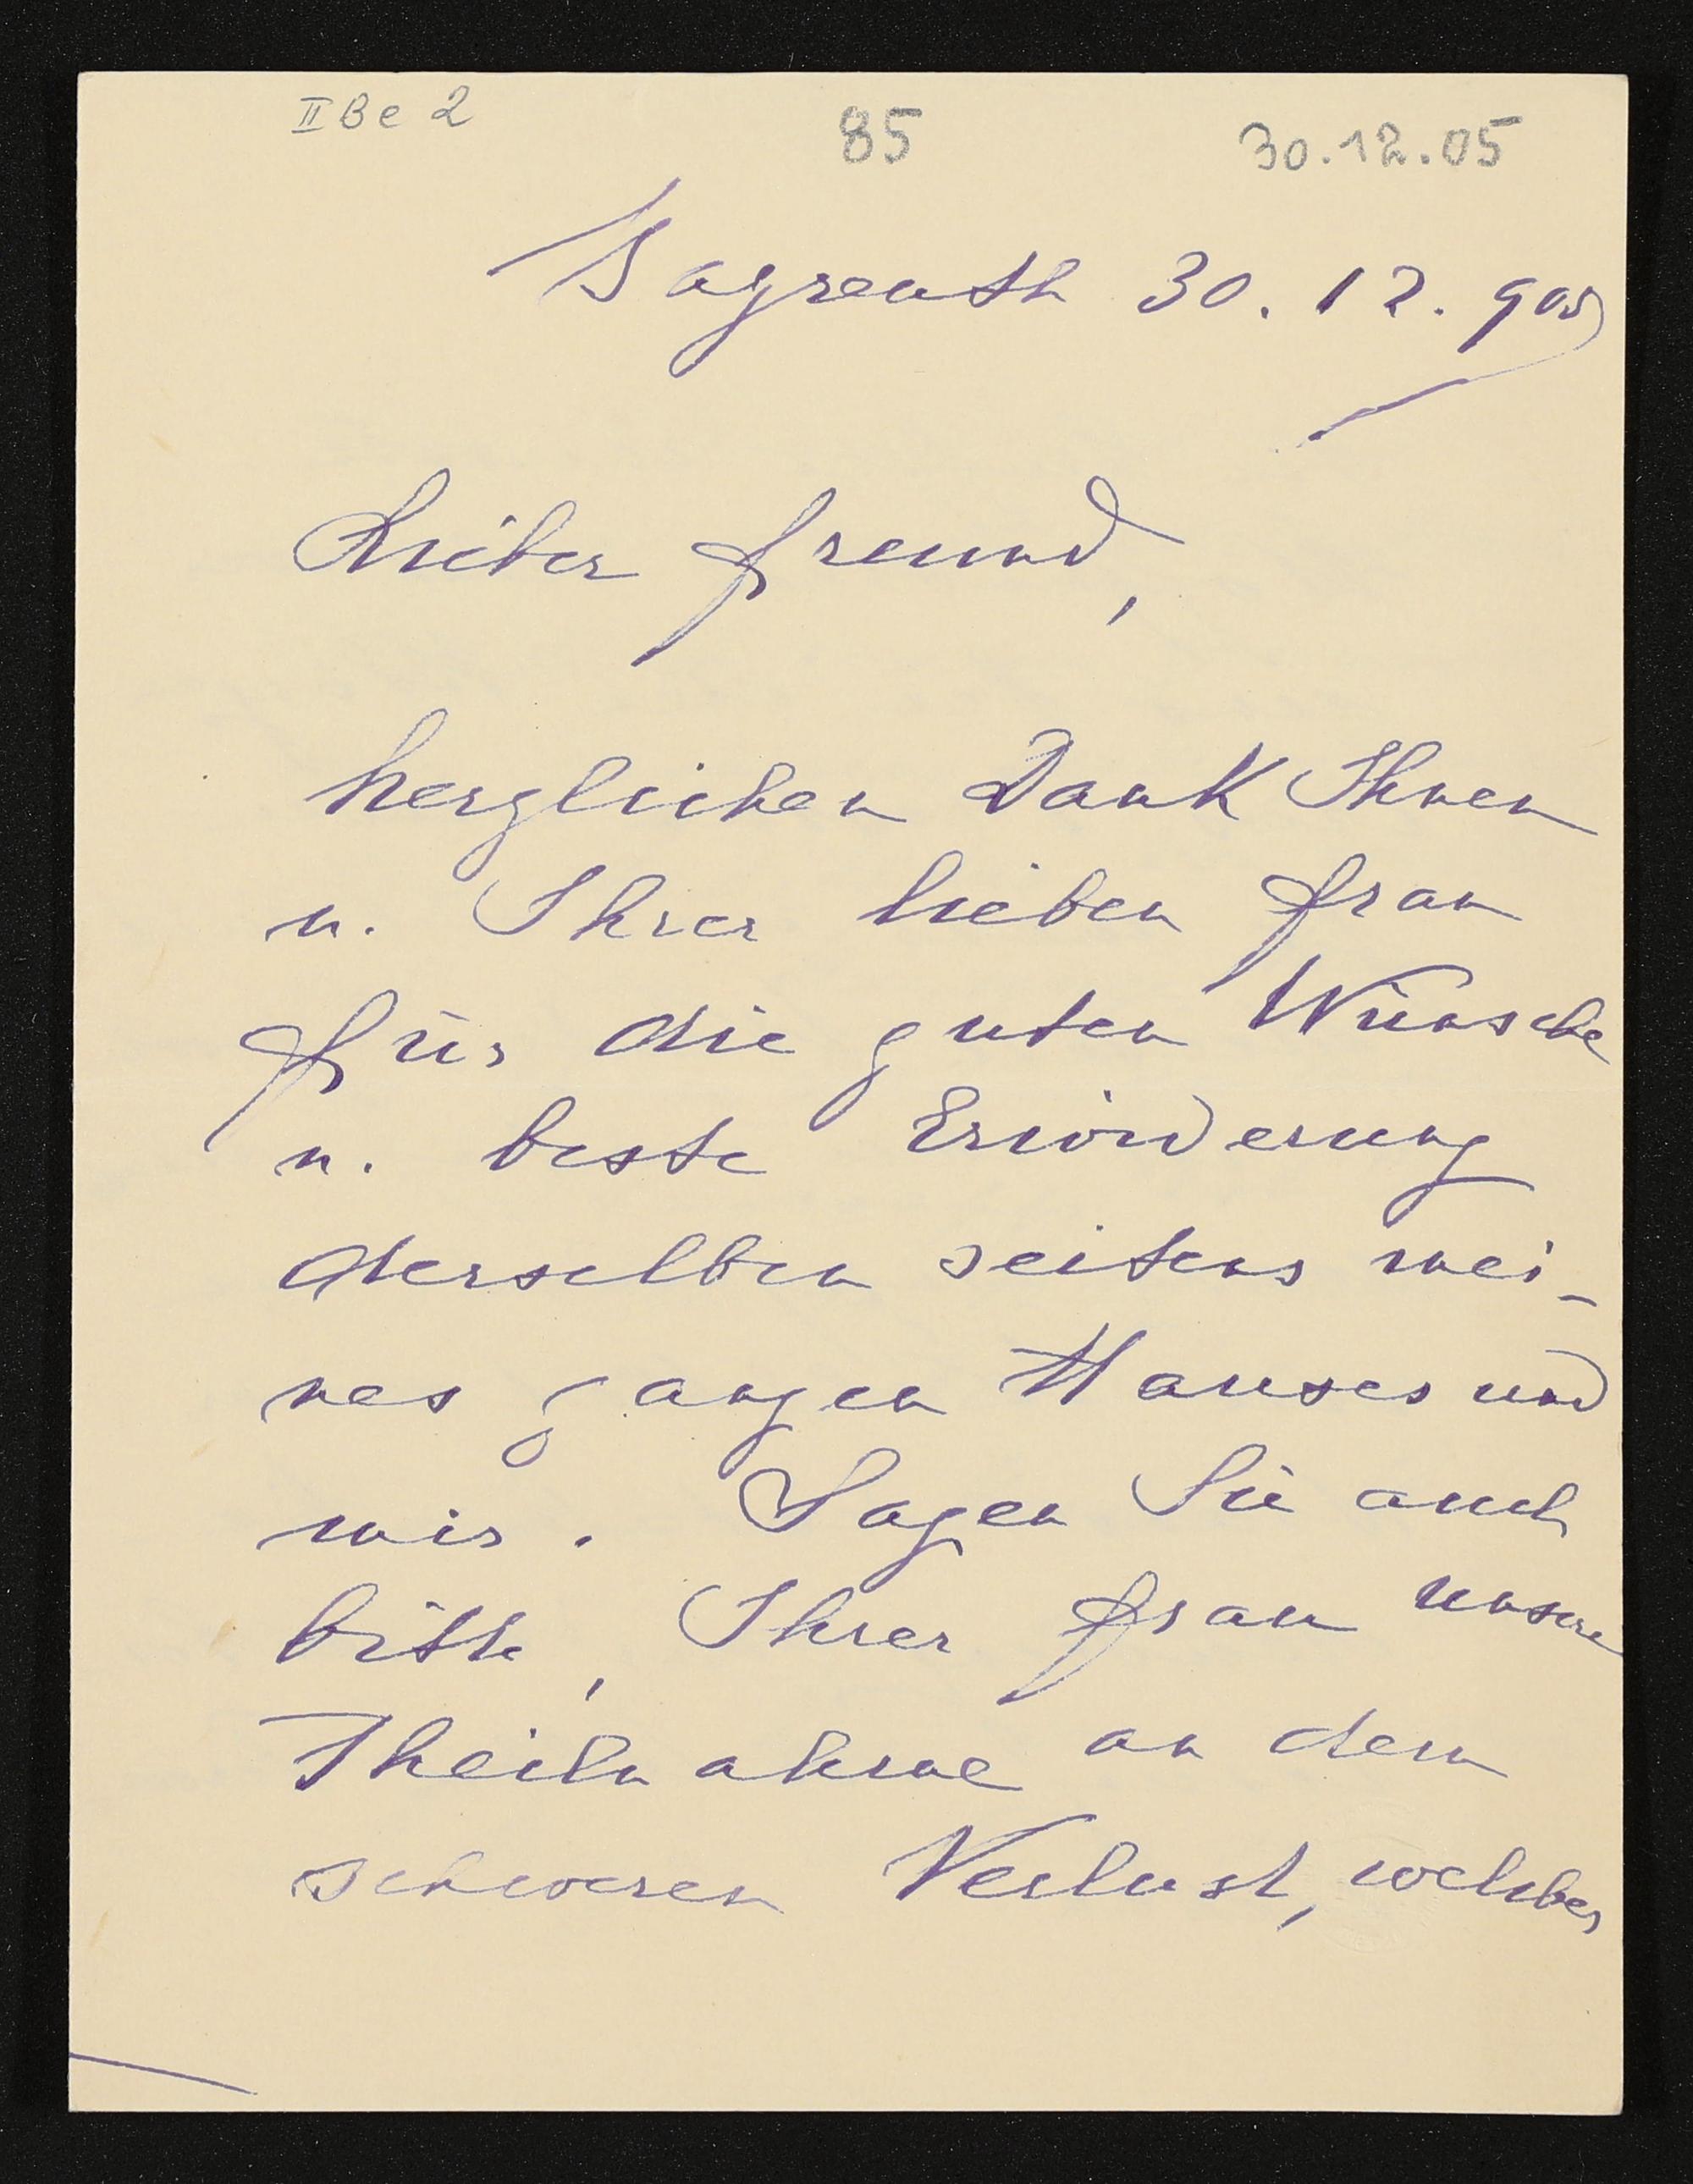 II Be 2
85
30.12.05
Bayreuth 30.12.905
Lieber Freund,
herzlichen Dank Ihnen
u. Ihrer lieben Frau
für die guten Wünsche
u. beste Erwiderung
derselben seitens mei-
nes ganzen Hauses und
mir. Sagen Sie auch
bitte, Ihrer Frau unsere
Theilnahme an dem
schweren Verlust, welcher